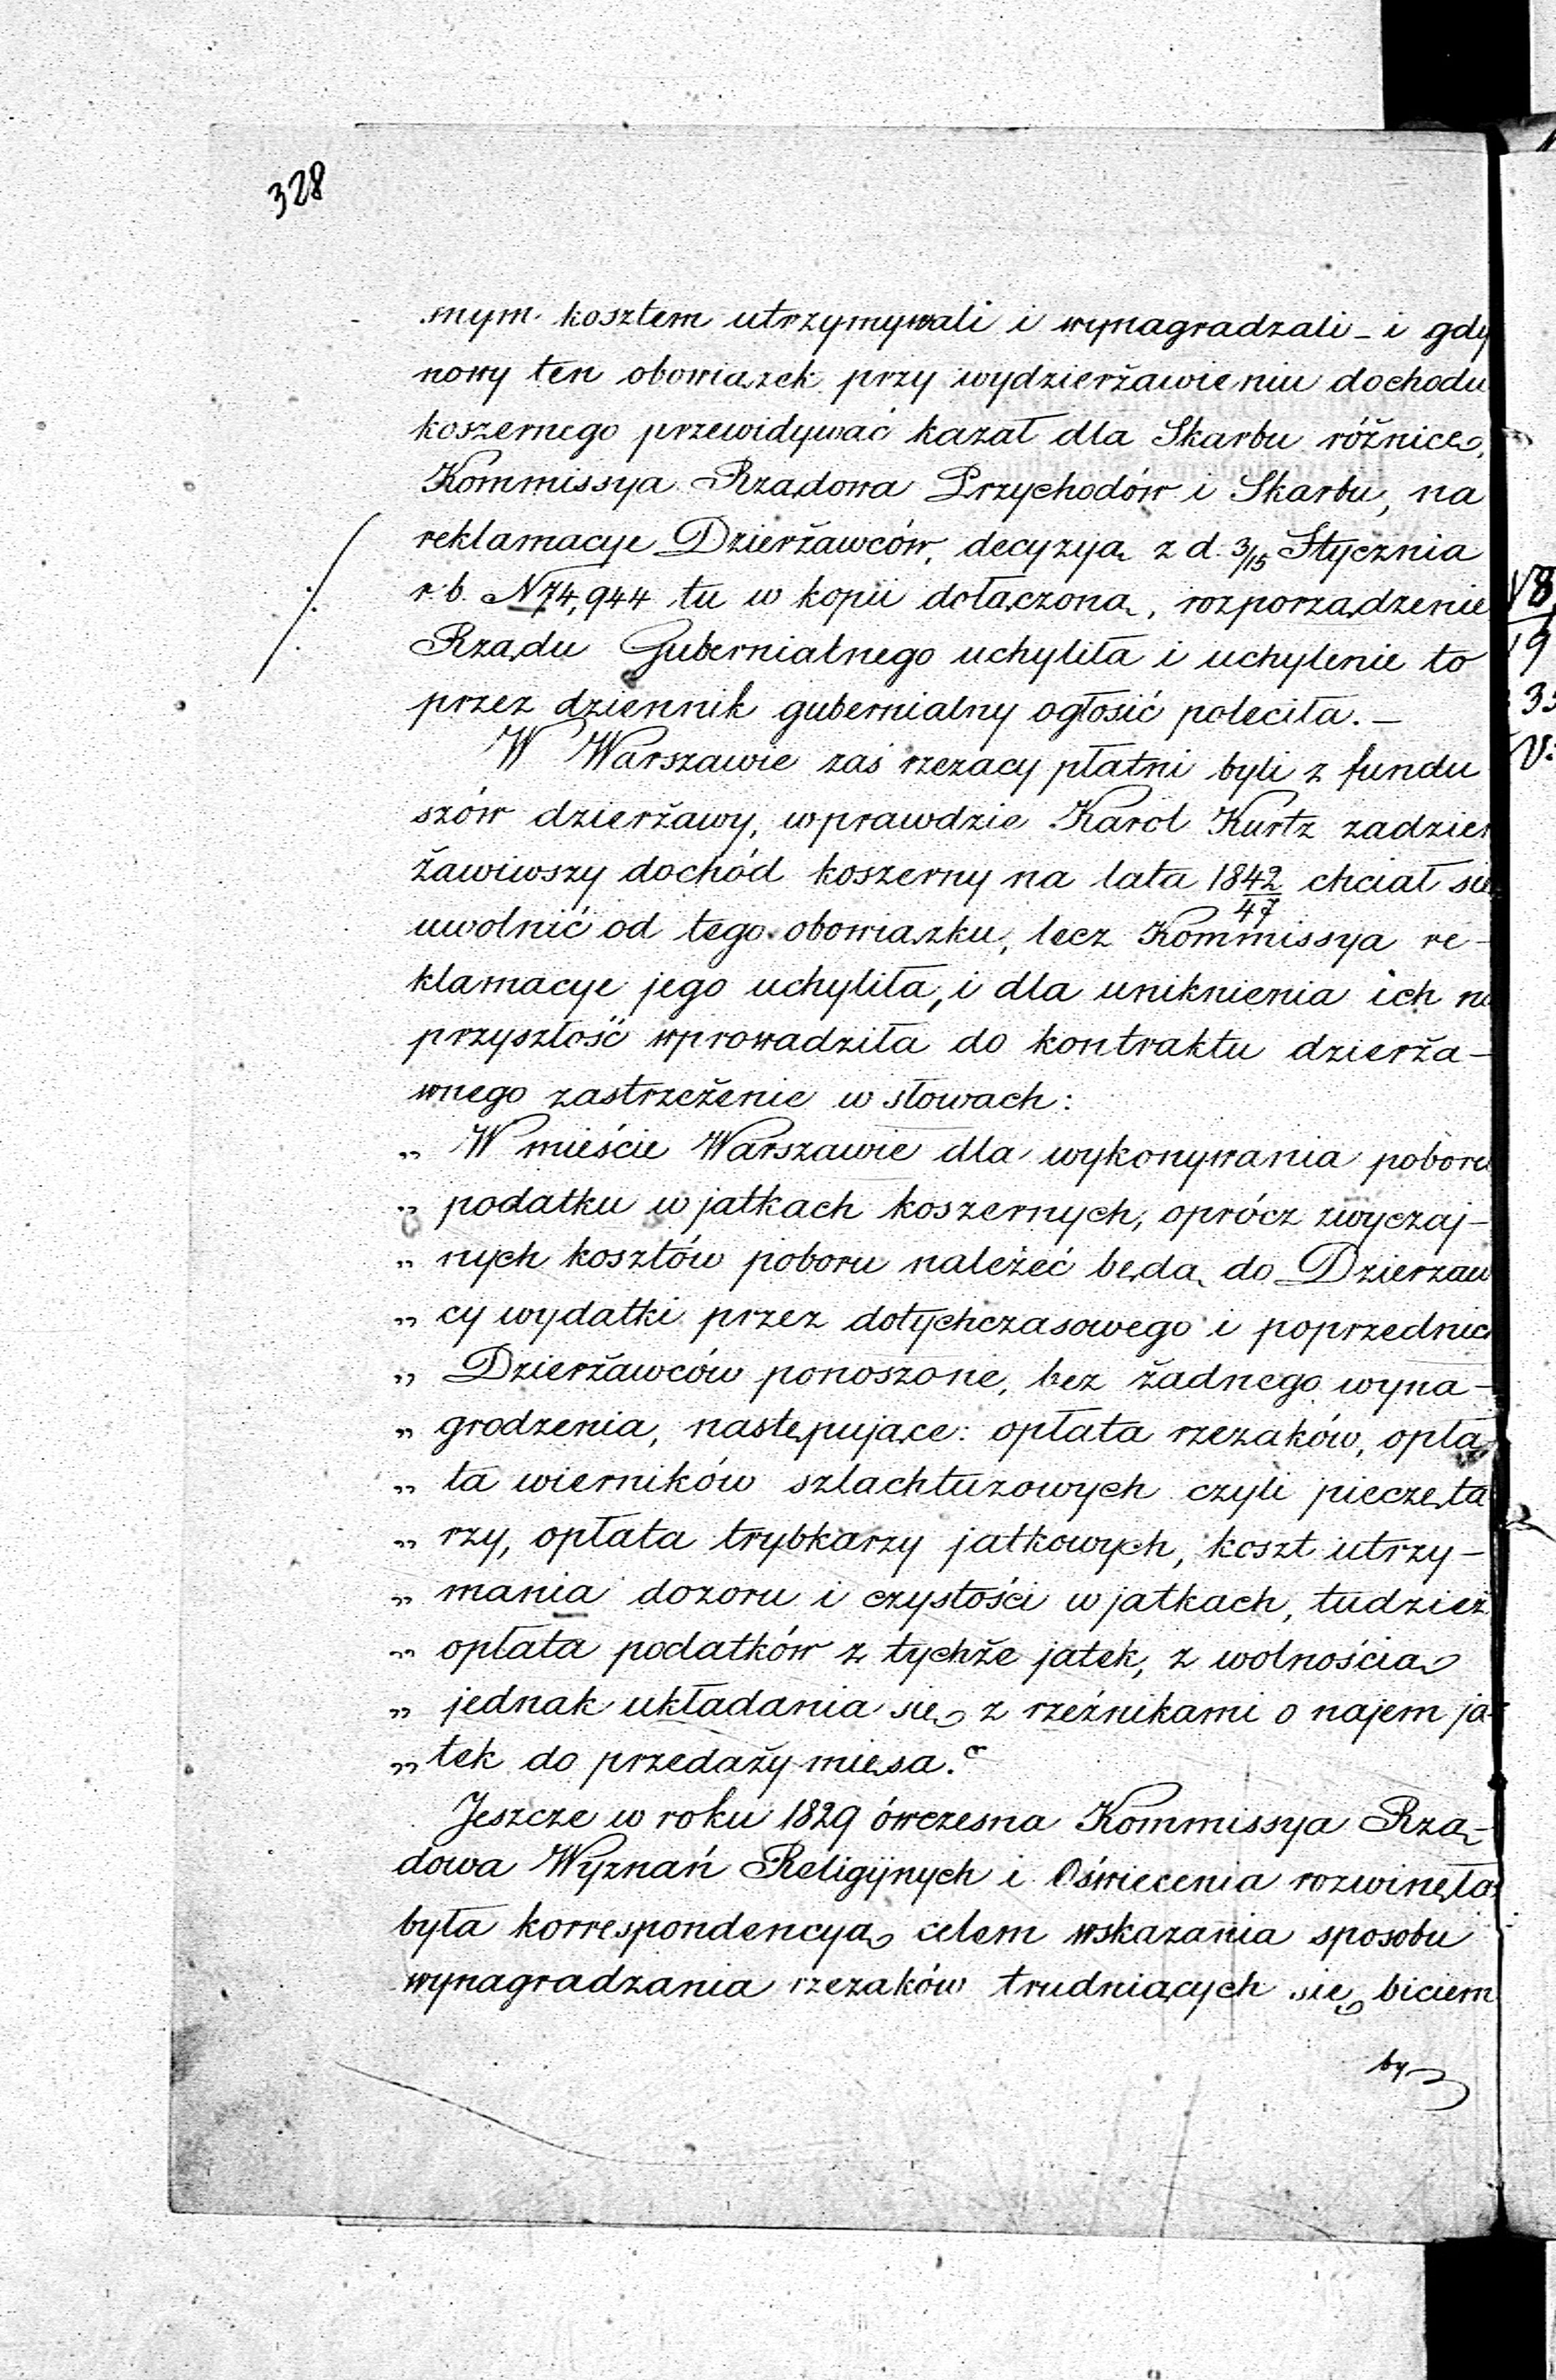 328
snym kosztem utrzymywali i wynagradzali – i gdy
nowy ten obowiązek przy wydzierżawieniu dochodu
koszernego przewidywać kazał dla Skarbu różnicę,
Kommissya Rządowa Przychodów i Skarbu, na
reklamacye Dzierżawców, decyzyą z d. 3/15 Stycznia
r. b. N 74,944 tu w kopii dołączoną, rozporządzenie
Rządu Gubernialnego uchyliła i uchylenie to
przez dziennik gubernialny ogłosić poleciła. –
W Warszawie zaś rzezacy płatni byli z fundu
szów dzierżawy, wprawdzie Karol Kurtz zadzier
żawiwszy dochód koszerny na lata 1842/47 chciał się
uwolnić od tego obowiązku, lecz Kommissya re-
klamacye jego uchyliła, i dla uniknienia ich na
przyszłość wprowadziła do kontraktu dzierża-
wnego zastrzeżenie w słowach:
„ W mieście Warszawie dla wykonywania poboru
„ podatku w jatkach koszernych, oprócz zwyczaj-
„ nych kosztów poboru należeć będą do Dzierzaw
„ cy wydatki przez dotychczasowego i poprzednich
„ Dzierżawców ponoszone, bez żadnego wyna-
„ grodzenia, następujące: opłata rzezaków, opła
„ ta wierników szlachtuzowych czyli pieczęta
„ rzy, opłata trybkarzy jatkowych, koszt utrzy-
„ mania dozoru i czystości w jatkach, tudzież
„ opłata podatków z tychże jatek, z wolnością
„ jednak układania się z rzeźnikami o najem ja-
„ tek do przedaży mięsa.“
Jeszcze w roku 1829 ówczesna Kommissya Rzą-
dowa Wyznań Religijnych i Oświecenia rozwinęła
była korrespondencyą celem wskazania sposobu
wynagradzania rzezaków trudniących się biciem
by